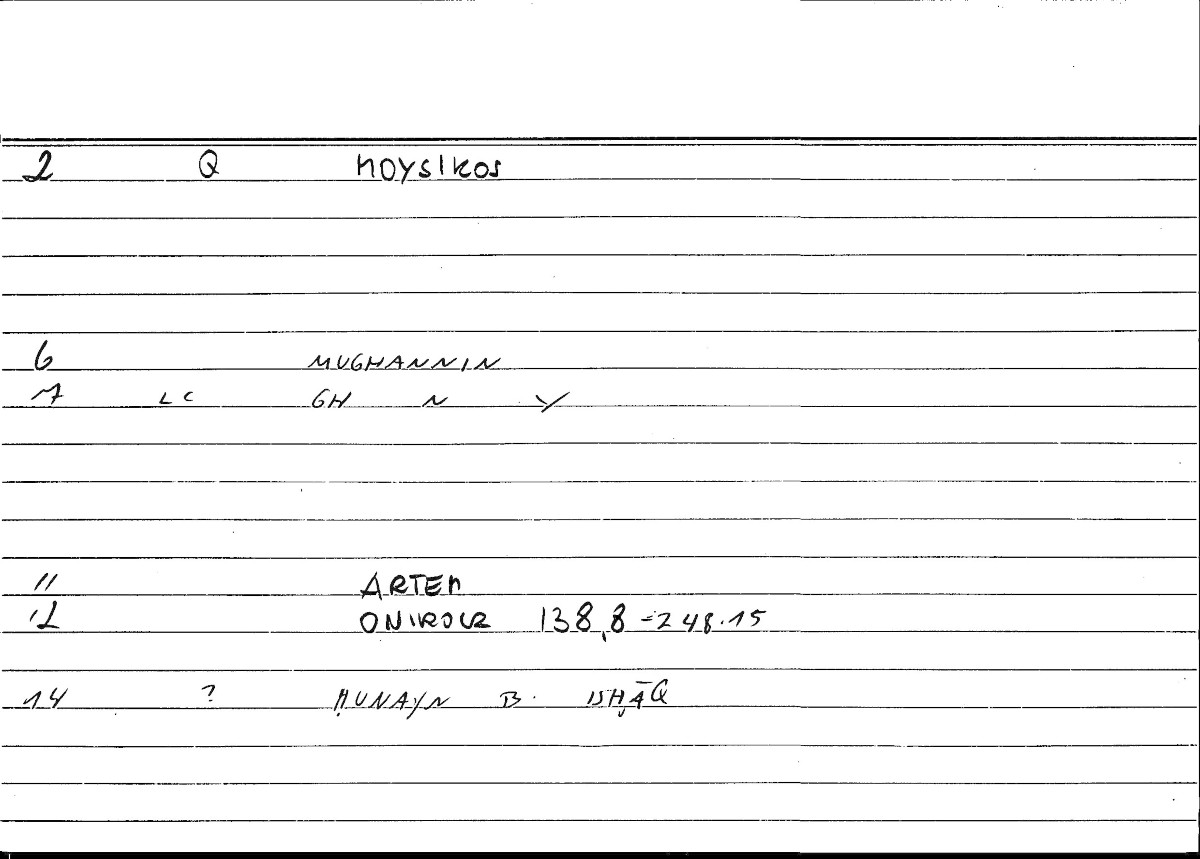 2 Q MOYSIKOS
6 MUGHANNIN
7 LC GH N Y
11 ARTEM
12 ONIROCR 138,8=248.15
14 ? ḤUNAYN B. ISḤĀQ